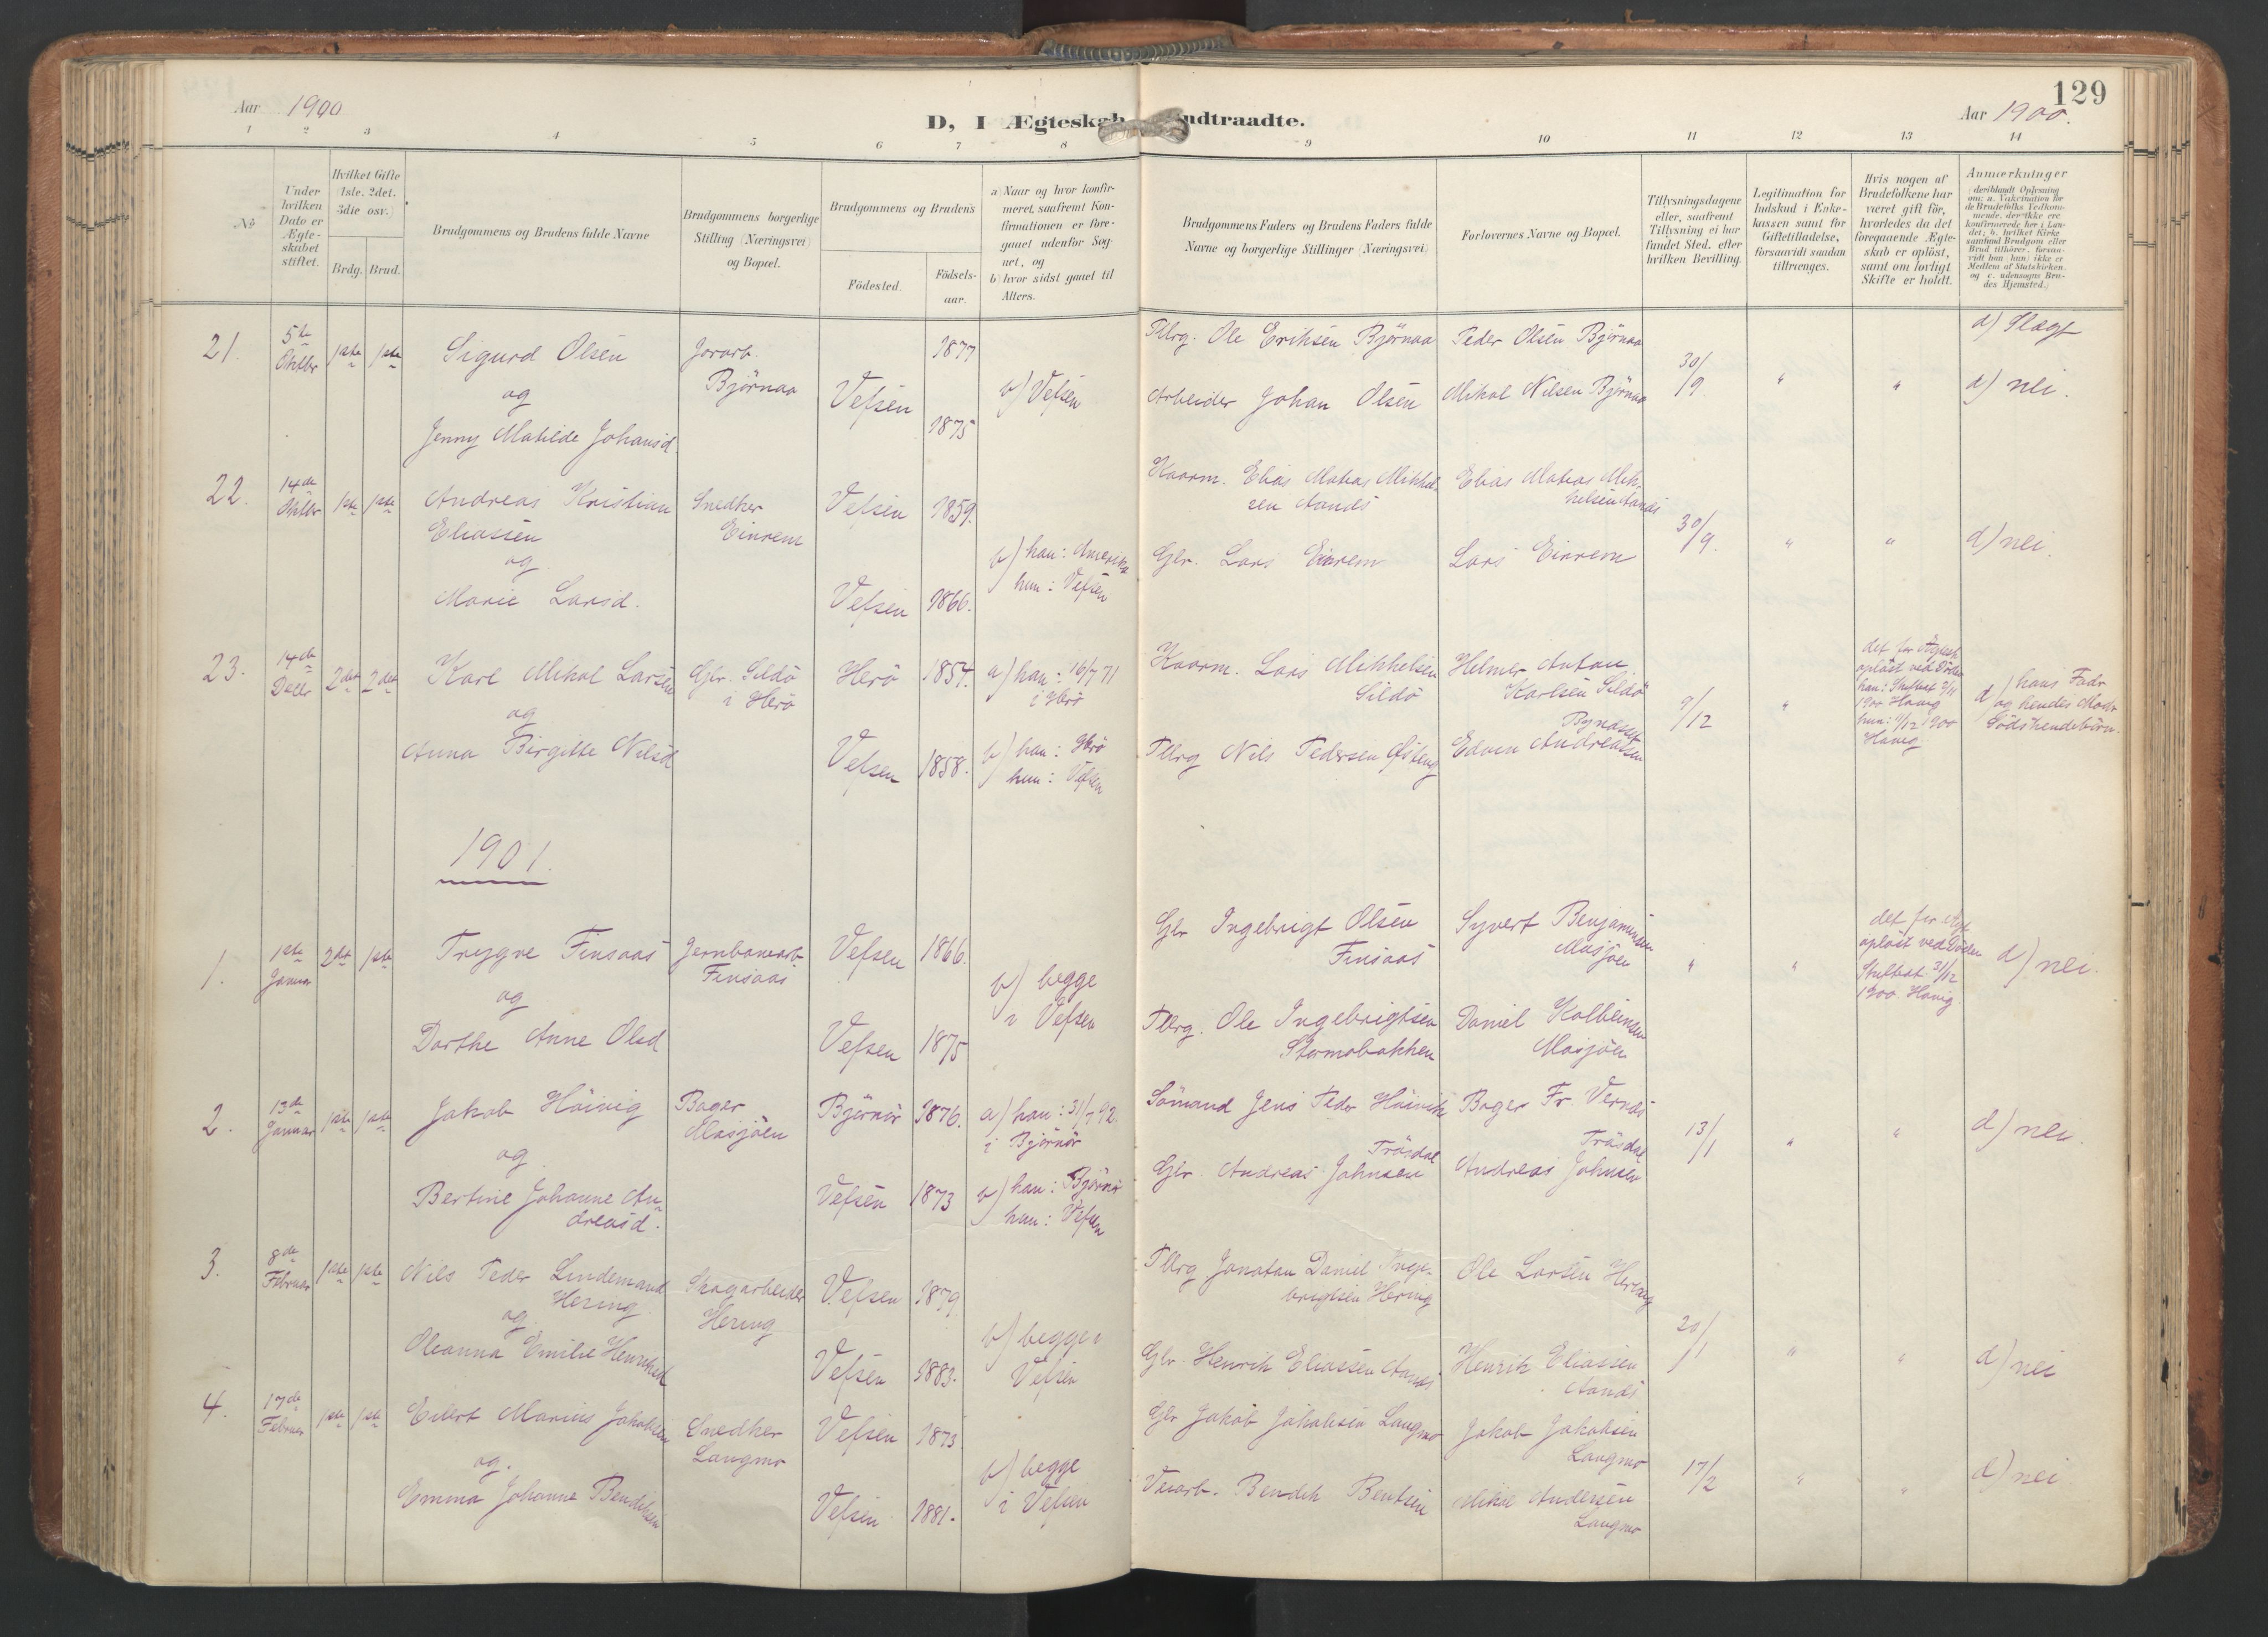 129
Aar 1900
D, I Ægteskab Indtraadte.
Aar 1900.
1 2 3 4 5 6 7 8 9 10 11 12 13 14
No
Under
hvilken
Dato er
Ægte-
skabet
stiftet.
Hvilket Gifte
(1ste. 2det.
3die osv.)
Brdg. Brud.
Brudgommens og Brudens fulde Navne
Brudgommens borgerlige
Stilling (Næringsvei)
og Bopæl.
Brudgommens og Brudens
Födested.
Födsels-
aar.
a) Naar og hvor konfir-
meret, saafremt Kon-
firmationen er fore-
gaaet udenfor Sog-
net, og
b) hvor sidst gaaet til
Alters.
Brudgommens Faders og Brudens Faders fulde
Navne og borgerlige Stillinger (Næringsvei)
Forlovernes Navne og Bopæl.
Tillysningsdagene
eller, saafremt
Tillysning ei har
fundet Sted, efter
hvilken Bevilling.
Legitimation for
Indskud i Enke-
kassen samt for
Giftetilladelse,
forsaavidt saadan
tiltrænges.
Hvis nogen af
Brudefolkene har
været gift för,
hvorledes da det
foregaaende Ægte-
skab er oplöst,
samt om lovligt
Skifte er holdt.
Anmærkninger
(deriblandt Oplysning
om: a. Vakcination for
de Brudefolks Vedkom-
mende, der ikke ere
konfirmerede her i Lan-
det; b. hvilket Kirke
samfund Brudgom eller
Brud tilhörer, forsaa-
vidt han (hun) ikke er
Medlem af Statskirken
og c. udensogns Bru-
des Hjemsted.)
21. 5te Oktbr 1ste 1ste
Sigurd Olsen
og
Jenny Matilde Johansd.
Jorarb.
Björnaa
Vefsen
1877
1875
b) Vefsen
Tllrg. Ole Eriksen Björnaa
Arbeider Johan Olsen
Peder Olsen Björnaa
Mikal Nilsen Björnaa
30/9 " "
d) Slægt
d) nei.
22. 14de Oktbr 1ste 1ste
Andreas Kristian
Eliassen
og
Marie Larsd.
Snedker
Einrem
Vefsen 1859.
Vefsen 1866.
b) han: Amerika
hun: Vefsen
Kaarm. Elias Matias Mikkel-
sen Aands
Gbr. Lars Einrem
Elias Matias Mik-
kelsen Aands
Lars Einrem
30/9. " "
d) nei.
23. 14de Decbr 2det 2det
Karl Mikal Larsen
og
Anna Birgitte Nilsd
Gbr. Sildö
i Herö
Herö 1854.
Vefsen 1858.
a) han: 16/7 71
i Herö
b) han: Herö
hun: Vefsen
Kaarm. Lars Mikkelsen
Sildö
Tllrg Nils Pedersen
Helmer Anton
Karlsen Sildö
Edvin Andreassen
9/12 "
det før Ægtesk
oplöst ved Döden
han: Skifteat 9/11
1900 Havig
hun: 9/12 1900
Havig
d) hans Fadr
og hendes Modr
Södskendebörn.
1901.
1. 1ste Januar 2det 1ste
Trygve Finsaas
og
Dorthe Anne Olsd
Jernbanearb
Finsaas
Vefsen 1866.
Vefsen 1875
b) begge
i Vefsen
Gbr Ingebrigt Olsen
Finsaas
Tllrg. Ole Ingebrigtsen
Stormobakken
Syvert Benjaminsen
Mosjöen
Daniel Kolbeinsen
Mosjöen
" "
det før Ægt
oplöst ved Döden
Skifteat 31/12
1900. Havig.
d) nei.
2. 13de Januar 1ste 1ste
Jakob Höivig
og
Bertine Johanne An-
dreasd.
Bager
Mosjöen
Björnör 1876.
Vefsen 1873
a) han: 31/7 92.
i Björnör
b) han: Björnör
hun: Vefsen
Sömand Jens Peder Höivik
Träsdal
Gbr. Andreas Johnsen
Bager Fr Vernes
Träsdal
Andreas Johnsen
13/1 " "
d) nei.
3. 8de Februar 1ste 1ste
Nils Peder Lindemand
Hering
og
Oleanna Emilie Henriksd
Skogarbeider
Hering
Vefsen 1879
Vefsen 1883.
b) begge i
Vefsen
Tllrg Jonatan Daniel Inge-
brigtsen Hering
Gbr. Henrik Eliassen Aands
Ole Larsen Hering
Henrik Eliassen
Aands
20/1 " "
d) nei
4. 17de Februar 1ste 1ste
Eilert Marius Jakobsen
og.
Emma Johanne Bendiksen
Snedker
Langmo
Vefsen 1873
Vefsen 1881.
b) begge
i Vefsen
Gbr Jakob Jakobsen Langmo
Veiarb. Bendik Bentsen
Jakob Jakobsen
Langmo
Mikal Andersen
Langmo
17/2 " "
d) nei.